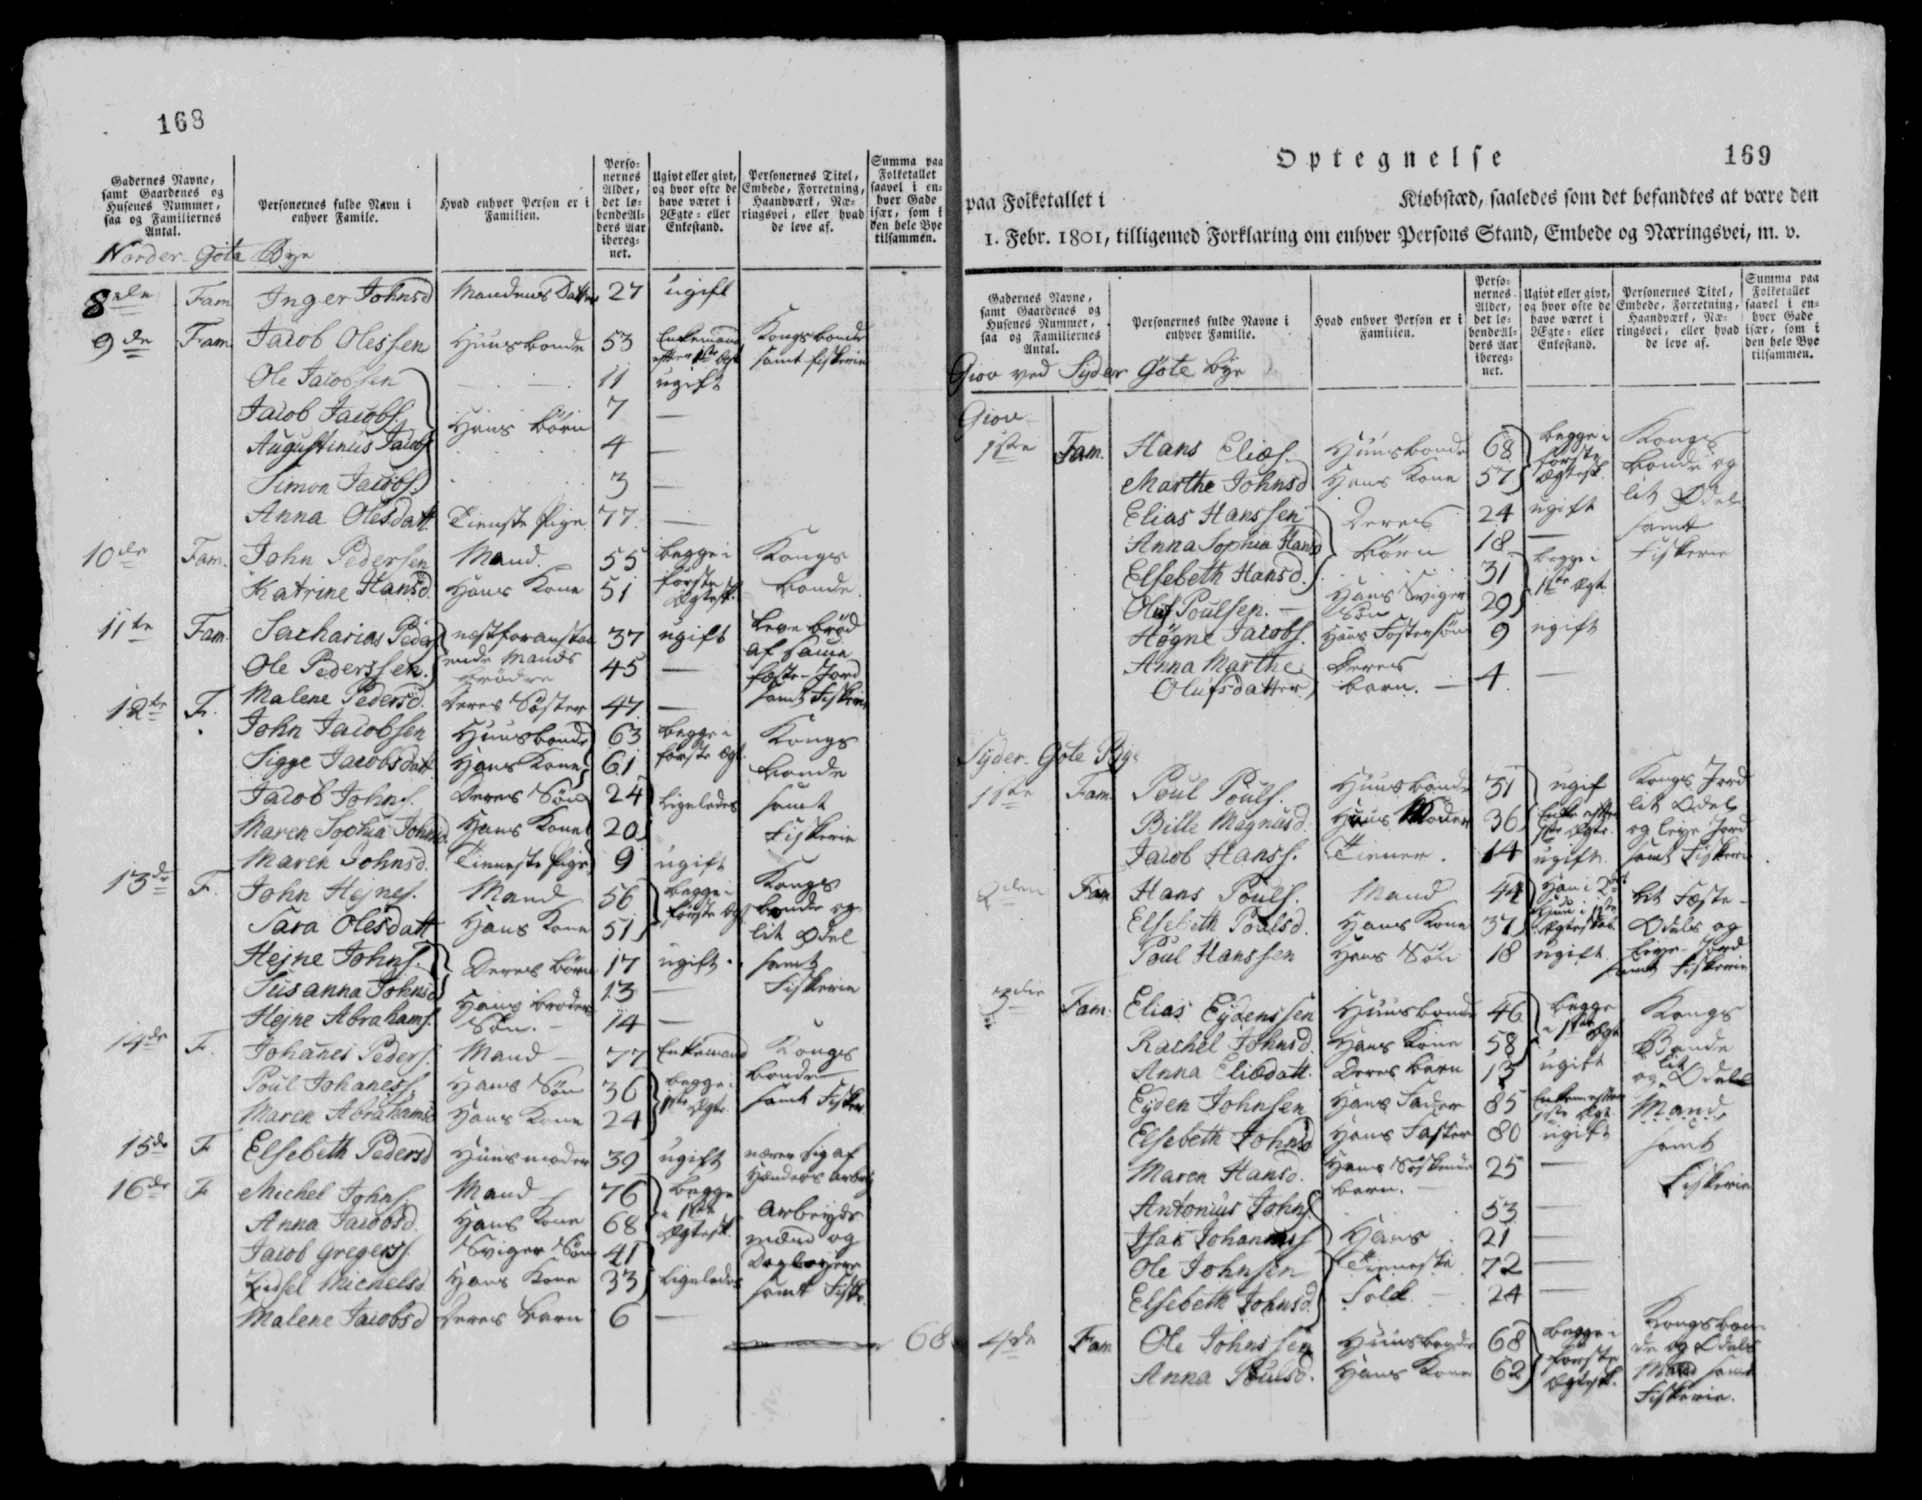 168
Gadernes Navne, samt Gaardenes og Husenes Nummer, saa og Familiernes Antal.
Personernes fulde Navn i enhver Famile.
Hvad enhver Person er i Familien.
Personernes Alder, det løbende Alders Aar iberegnet.
Ugivt eller givt, og hvor ofte de have været i Ægte- eller Enkestand.
Personernes Titel, Embede, Forretning, Haandværk, Næringsvei, eller hvad de leve af.
Summa paa Folketallet saavel i enhver Gade især, som i den hele Bye tilsammen.
Norder Göta Bye
8de Fam Inger Johnsd Mandens Datter 27 ugift
9de Fam. Jacob Olessen Huusbonde 53 Enkemand efter 1ste Ægt Kongsbonde samt fiskerie
Ole Jacobsen 11 ugift
Jacob Jacobs. Hans Börn 7 —
Augustinus Jacobs 4 —
Simon Jacobs. 3 —
Anna Olesdatt Tieneste Pige 77 —
10de Fam. John Pedersen Mand. 55 begge i Kongs
Katrine Hansd. Hans Kone 51 første Ægtesk. bonde.
11te Fam. Sacharias Peders næstforanstaa 37 ugift leve brød
Ole Pederssen. ende Mands brödre 45 — af samme fæste-Jord
Malene Pedersd. Deres Søster 47 — samt Fiskerie
12te F. John Jacobsen Huusbonde 63 begge i Kongs
Sigge Jacobsdatt Hans Kone 61 første Ægt. bonde
Jacob Johns. Deres Søn 24 ligeledes samt
Maren Sophia Johnsd Hans Kone 20 Fiskerie
Maren Johnsd. Tieneste Pige 9 ugift
13de F. John Hejnes. Mand 56 begge i Kongs
Sara Olesdatt Hans Kone 51 første Ægt bonde og lit Odel
Hejne Johns. Deres Börn 17 ugift samt
Susanna Johnsd 13 — Fiskerie
Hejne Abrahams. Hans broders Søn. 14 —
14de F. Johanes Peders. Mand — 77 Enkemand Kongs
Poul Johaness. Hans Søn 36 begge i bonde
Maren Abrahamsd Hans Kone 24 1ste Ægte. samt Fisker
15de F. Elsebeth Pedersd Huusmoder 39 ugift nærer sig af Hænders Arbej
16de F. Michel Johns. Mand 76 begge Arbeyds
Anna Jacobsd. Hans Kone 68 i 1ste Ægtesk. mænd og
Jacob Gregerss. Sviger Søn 41 Dagleyere
Michelsd Hans Kone 33 ligeledes samt Fiske
Malene Jacobsd Deres barn 6 —
68
Optegnelse
169
paa Folketallet i Kiøbstæd, saaledes som det befandtes at være den
1. Febr. 1801, tilligemed Forklaring om enhver Persons Stand, Embede og Næringsvei, m. v.
Gadernes Navne, samt Gaardenes og Husenes Nummer, saa og Familiernes Antal.
Personernes fulde Navne i enhver Familie.
Hvad enhver Person er i Familien.
Personernes Alder, det løbende Alders Aar iberegnet.
Ugivt eller givt, og hvor ofte de have været i Ægte- eller Enkestand.
Personernes Titel, Embede, Forretning, Haandværk, Næringsvei, eller hvad de leve af.
Summa paa Folketallet saavel i enhver Gade især, som i den hele Bye tilsammen.
Giov ved Syder Gøte bye
Giov
1ste Fam. Hans Elias. Huusbonde 68 begge i Kongs
Marthe Johnsd Hans Kone 57 første Ægtesk. bonde og
Elias Hanssen Deres 24 ugift lit Odel
Anna Sophia Hansd börn 18 — samt
Elsebeth Hansd. 31 begge i Fiskerie
Oluf Poulsen. — Hans Sviger Søn 29 1ste Ægt
Högne Jacobs. Hans Fostersøn 9 ugift
Anna Marthe Olufsdatter Deres barn. — 4 —
Syder Gøte Bye
1ste Fam. Poul Pouls. Huusbonde 31 ugif Kongs Jord
Bille Magnusd. Hans Moder 36 Enke efter 1ste Ægte. lit Odel og leye Jord
Jacob Hanss. Tiener. 14 ugift samt Fiskerie
2den Fam Hans Pouls. Mand 44 Han i 2det lit Fæste-
Elsebeth Poulsd. Hans Kone 37 Hun i 1ste Ægteskab Odels og
Poul Hanssen Hans Søn 18 ugift leye-Jord samt Fiskerie
3die Fam. Elias Eydenssen Huusbonde 46 begge Kongs
Rachel Johnsd. Hans Kone 58 i 1ste Ægt Bonde
Anna Eliædatt. Deres barn 13 ugift og lit Odels
Eyden Johnsen Hans Fader 85 Enkem efter 1ste Ægt Mand
Elsebeth Johnsd Hans Faster 80 ugift samt
Maren Hansd. Hans Söskende barn. 25 — Fiskerie
Antonius Johns. 53 —
Isak Johanness Hans 21 —
Ole Johnsen Tieneste 72 —
Elsebeth Johnsd. Folk 24 —
4de Fam Ole Johnssen Huusbonde 68 begge i Kongsbon-
Anna Poulsd. Hans Kone 62 første Ægtesk. de og Odels Mand samt Fiskerie.